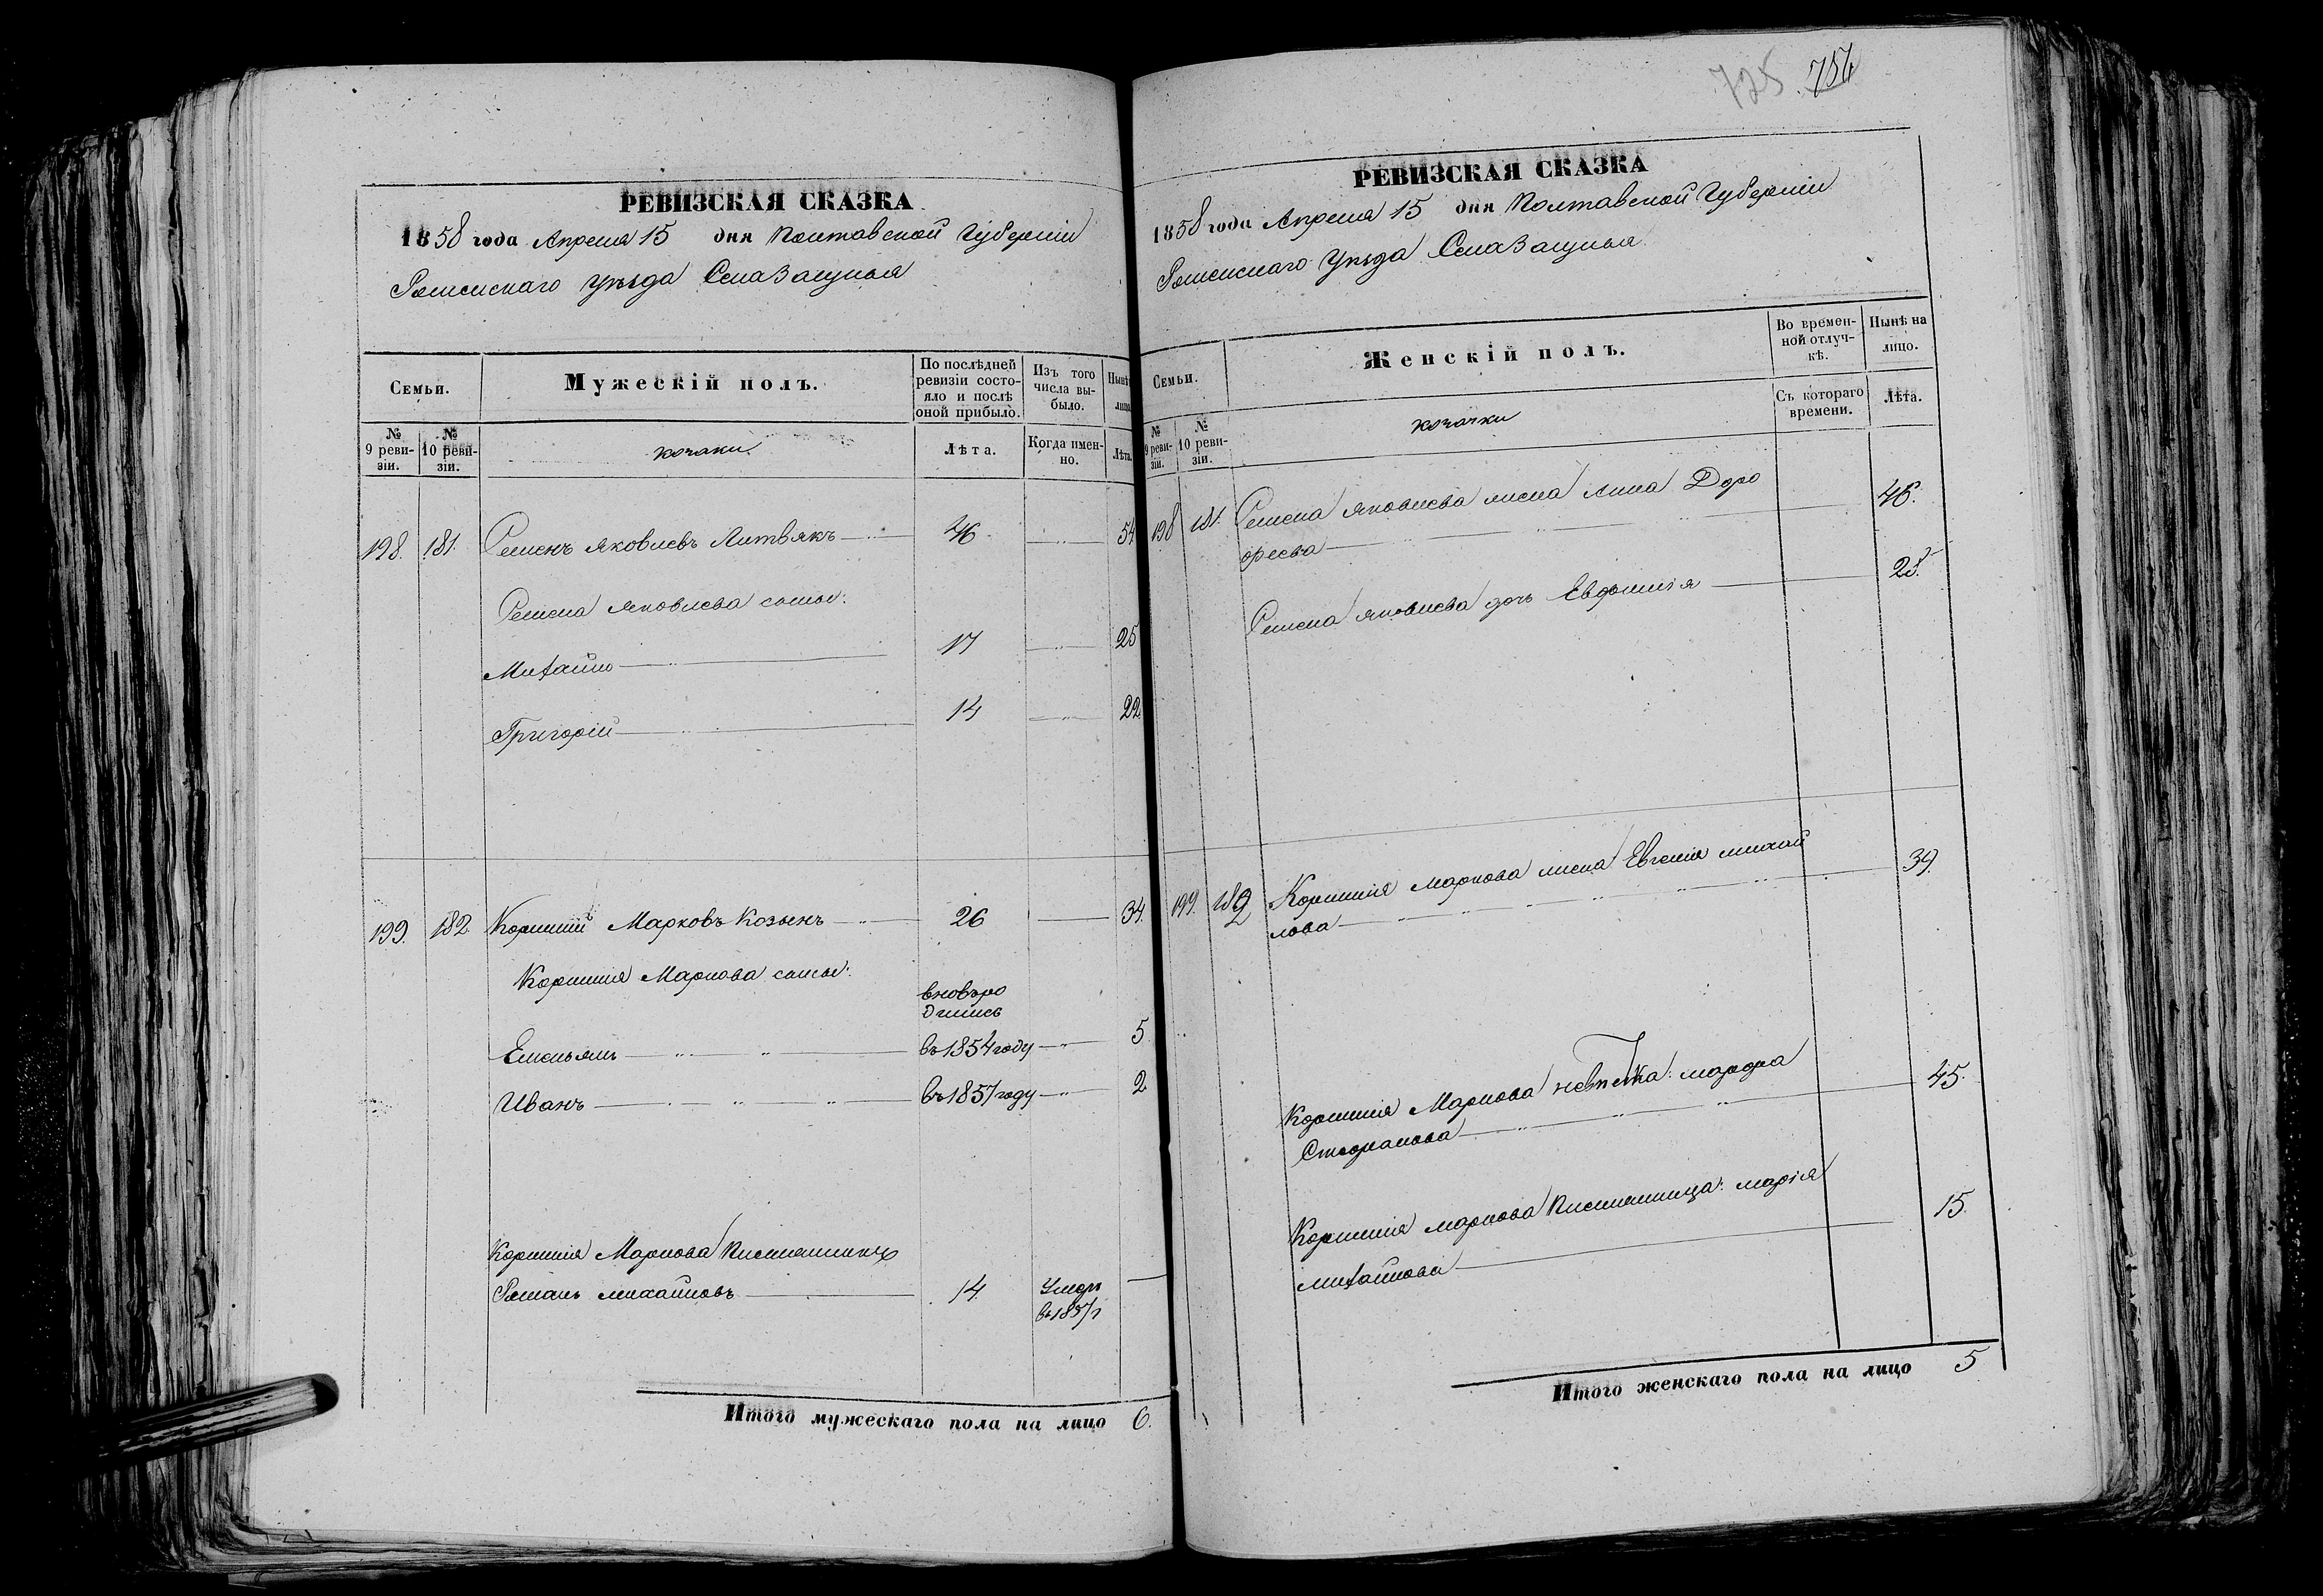 РЕВИЗСКАЯ СКАЗКА
1858 года Апреля 15 дня Полтавской Губерніи
Роменскаго Уѣзда Села
Семьи.
Мужескій полъ.
По послѣдней ревизіи состояло и послѣ оной прибыло.
Изъ того числа выбыло.
Нынѣ
лицо
№ 9 ревизіи.
№ 10 ревизіи.
козаки
Лѣта.
Когда именно.
Лѣта.
198. 181. Семенъ Яковлевъ Литвякъ 46 54
Семена Яковлева сыны:
Михайло 17 25
Григорій 14 22
199. 182. Корнилій Марковъ Козынъ 26 34.
Корнилія Маркова сыны:
вновь ро
дились
Емельянъ въ 1854 году 5
Иванъ въ 1857 году 2
Корнилія Маркова
Романъ Михайловъ 14. Умеръ
въ 1857 г
Итого мужескаго пола на лицо 6.
725 754
РЕВИЗСКАЯ СКАЗКА
1858 года Апреля 15 дня Полтавской Губерніи
Роменскаго Уѣзда Села
Семьи.
Женскій полъ.
Во временной отлучкѣ.
Нынѣ на лицо.
№ 9 ревизіи.
№ 10 ревизіи.
козачки
Съ котораго времени.
Лѣта.
198 181. Семена Яковлева жена Анна Доро 46.
феева
Семена Яковлева дочь Евфимія 28.
199. 182 Корнилія Маркова жена Евгенія Михай 34.
лова
Корнилія Маркова невѣстка: Марфа 45.
Стефанова
Корнилія Маркова племянница: Марія 15.
Михайлова
Итого женскаго пола на лицо 5